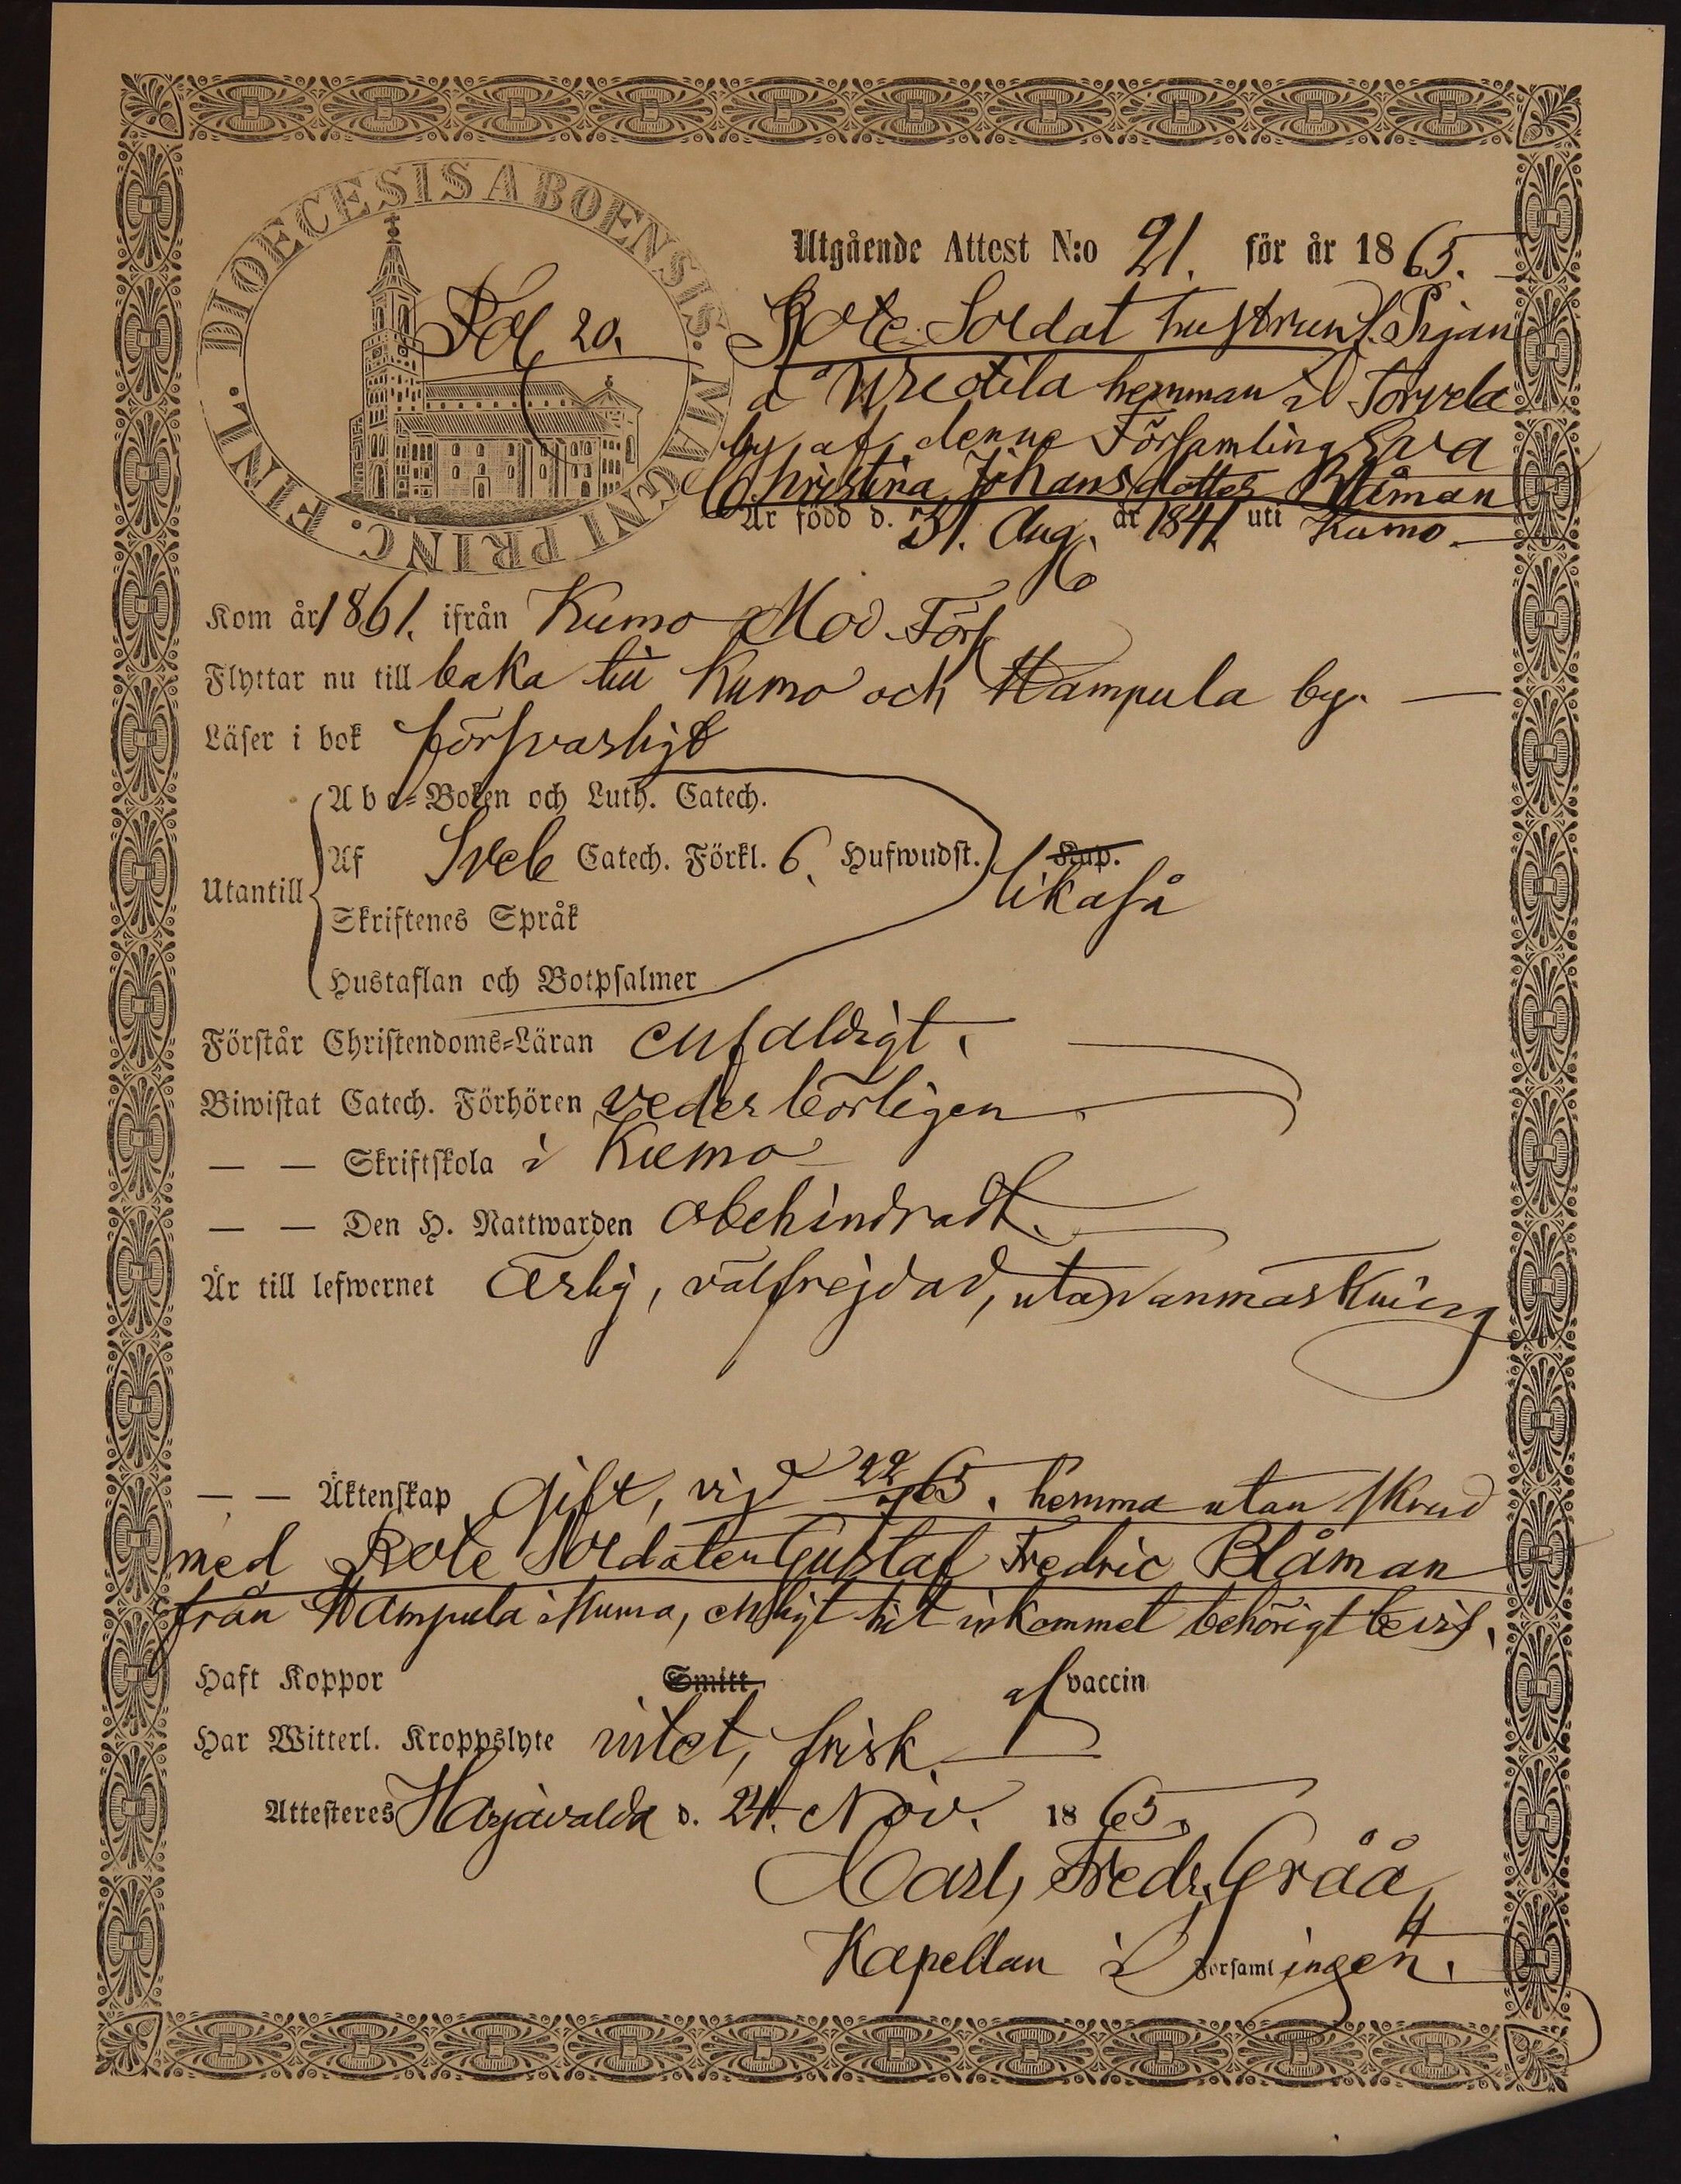 DIOECESIS ABOENSIS. MAGNI PRINC. FINL.
Utgående Attest N:o 21. för år 1865.
Fol. 20.
Rote Soldat hustrun f. Pigan
å Wreotila hemman i Torvela
by af denne Församling Eva
Christina Johansdotter Blåman
Är född d. 31. Aug. år 1841 uti Kumo.
Kom år 1861. ifrån Kumo Mod. Förs.
Flyttar nu till baka till Kumo och Hampula by.
Läser i bok försvarligt
Utantill
Abc-Boken och Luth. Catech.
Af Sveb Catech. Förkl. 6. Hufwudst. Kap.
likaså
Skriftenes Språk
Hustaflan och Botpsalmer
Förstår Christendoms-Läran enfaldigt.
Biwistat Catech. Förhören vederbörligen
— — Skriftskola i Kumo
— — Den H. Nattwarden obehindradt.
Är till lefwernet ärlig, välfrejdad, utan anmärkning
— — Äktenskap gift, vigd 65. hemma utan skrud
med Rote Soldaten Gustaf Fredric Blåman
från Hampula i Kumo, enligt hit inkommet behörigt bevis.
Haft Koppor Smitt af vaccin
Har Witterl. Kroppslyte intet, frisk.
Attesteres Harjavalda d. 24. Nov. 1865.
Carl Fredr. Gråå,
Kapellan i Församlingen.